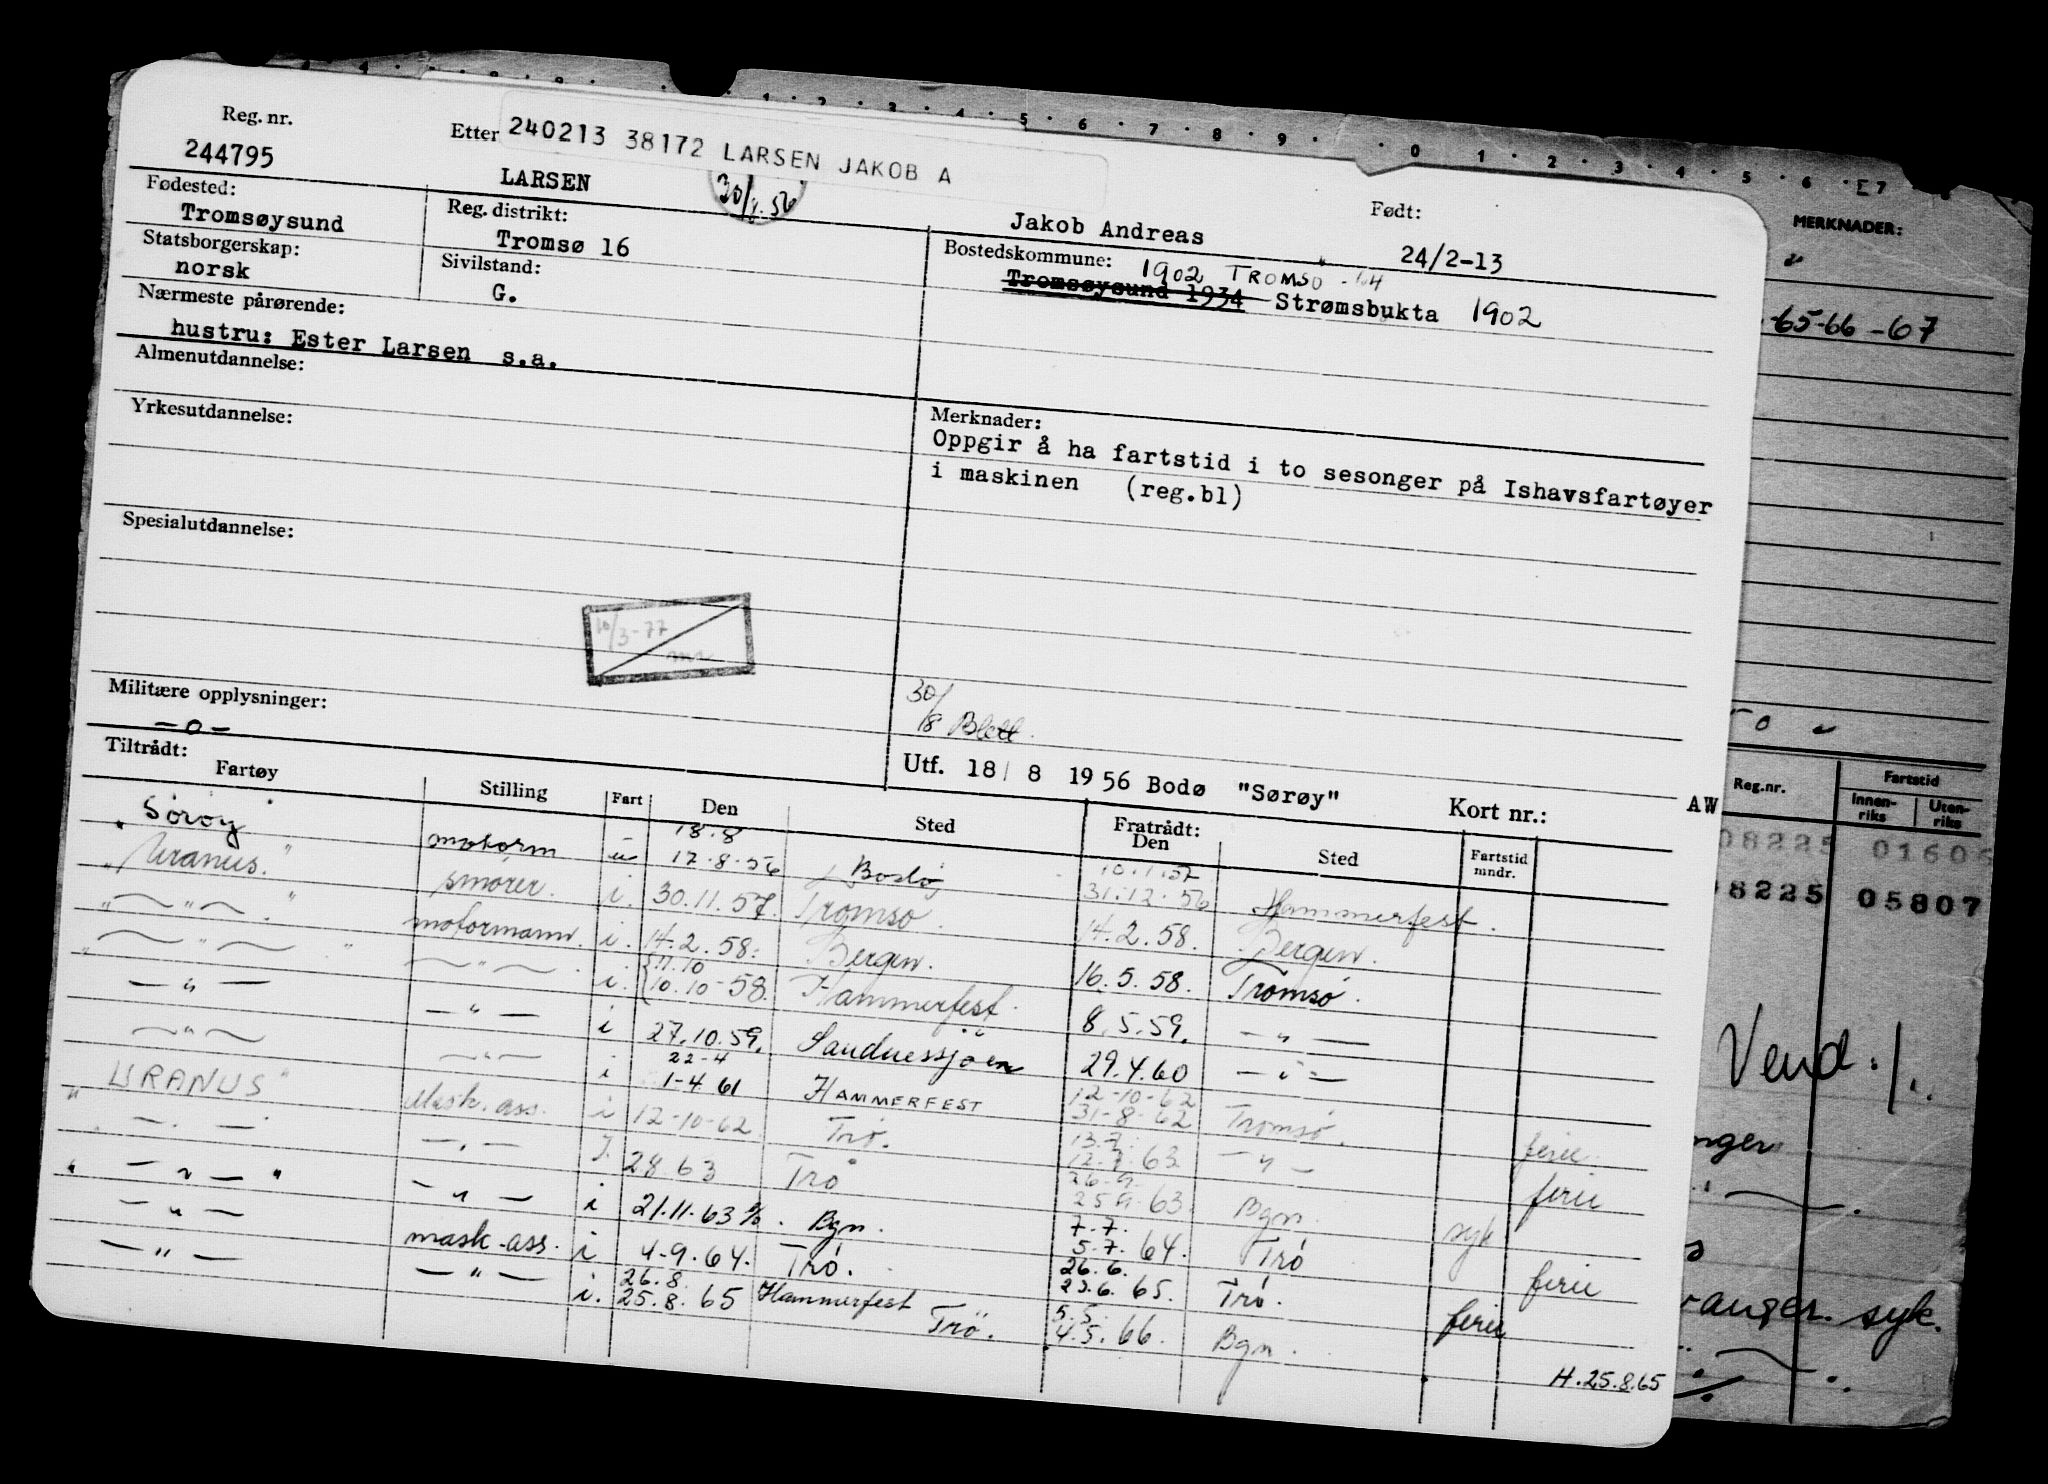 Reg. nr.
244795
Etter
240213 38172 LARSEN JAKOB A
LARSEN
Jakob Andreas
Født:
24/2-13
Fødested:
Tromsøysund
Reg. distrikt:
Tromsø 16
Bostedskommune:
1902 TROMSØ -64
Tromsøysund 1934 Strømsbukta 1902
Statsborgerskap:
norsk
Sivilstand:
G.
Nærmeste pårørende:
hustru: Ester Larsen s.a.
Almenutdannelse:
Yrkesutdannelse:
Merknader:
Oppgir å ha fartstid i to sesonger på Ishavsfartøyer
i maskinen (reg.bl)
Spesialutdannelse:
10/3-77
Militære opplysninger:
-o-
30/8 Blett.
Utf. 18/8 1956 Bodø "Sørøy" Kort nr.: AW
Tiltrådt:
Fartøy Stilling Fart Den Sted Fratrådt: Den Sted Fartstid mndr.
18.8 10.1.57
Sørøy motorm u 17.8.56 Bodø 31.12.56 Hammerfest.
"Uranus." smører. i. 30.11.57. Tromsø 14.2.58. Bergen.
" — " — . " motormann. i. 14.2.58. Bergen. 16.5.58. Tromsø.
11.10
" — " — " — " — . i. 10.10-58. Hammerfest. 8.5.59. — " —
— " — — " — i 27.10.59. Sandnessjøen 29.4.60 — " —
22-4 12-10-62
— " — — " — i 1-4.61 HAMMERFEST 31-8-62 Tromsø. ferie.
13.7.
"URANUS" Mask. ass. i 12-10-62 Trø. 12.7.63 — " — ferie
26.9.
— . — — . — I. 28.63 Trø 25.9.63. Bgn. syk
7.7.
" — " — " — " — i 21.11.63 Bgn. 5.7.64. Trø ferie
26.6.
— " — mask-ass. i 4-9.64. Trø. 23.6.65. Trø. ferie
26.8. 5.5.
— " — — " — i. 25.8.65 Hammerfest Trø. 4.5.66. Bgn.
H. 25.8.65
MERKNADER:
-65-66-67
Reg.nr.
Fartstid
Innenriks Utenriks
08225 01606
8225 05807
Vend ./.
syk.